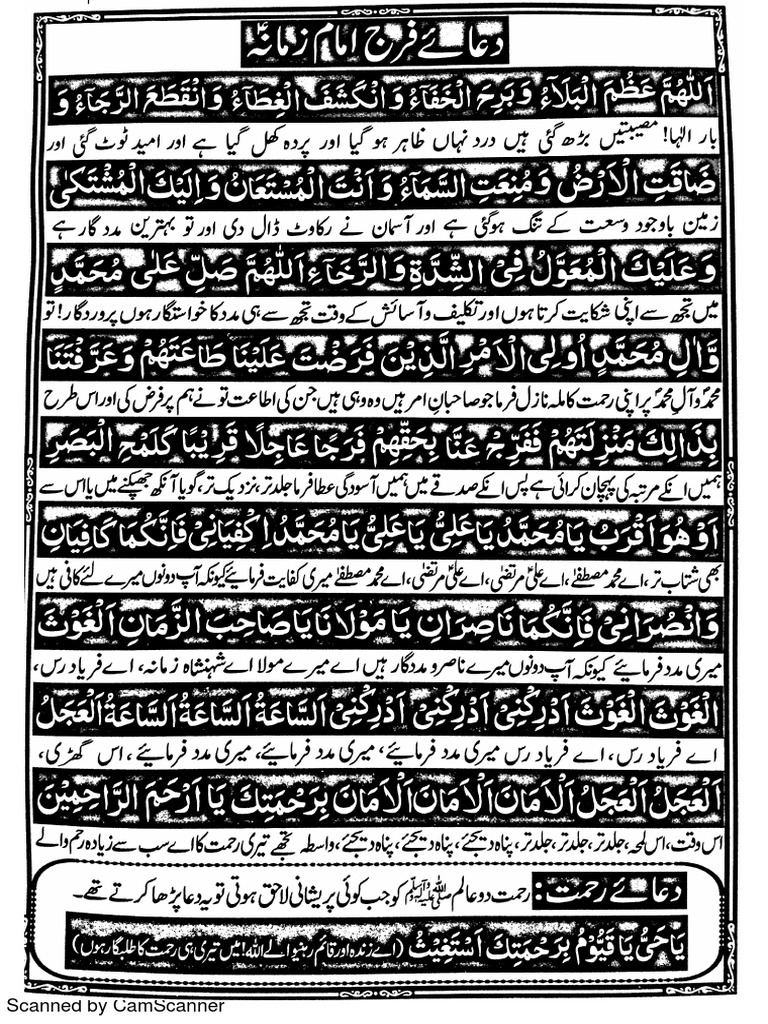 دعائے فرج امام زمانہؑ
اَللّٰهُمَّ عَظُمَ الْبَلَآءُ وَبَرِحَ الْخَفَآءُ وَانْكَشَفَ الْغِطَآءُ وَانْقَطَعَ الرَّجَآءُ وَ
بار الٰہا! مصیبتیں بڑھ گئی ہیں درد نہاں ظاہر ہو گیا اور پردہ کھل گیا ہے اور امید ٹوٹ گئی اور
ضَاقَتِ الْاَرْضُ وَمُنِعَتِ السَّمَآءُ وَاَنْتَ الْمُسْتَعَانُ وَاِلَيْكَ الْمُشْتَكٰى
زمین باوجود وسعت کے تنگ ہوگئی ہے اور آسمان نے رکاوٹ ڈال دی اور تو بہترین مدد گار ہے
وَعَلَيْكَ الْمُعَوَّلُ فِى الشِّدَّةِ وَالرَّخَآءِ اَللّٰهُمَّ صَلِّ عَلٰى مُحَمَّدٍ
میں تجھ سے اپنی شکایت کرتا ہوں اور تکلیف و آسائش کے وقت تجھ سے ہی مدد کا خواستگار ہوں پروردگار! تو
وَّاٰلِ مُحَمَّدٍ اُولِى الْاَمْرِ الَّذِيْنَ فَرَضْتَ عَلَيْنَا طَاعَتَهُمْ وَعَرَّفْتَنَا
محمدؐ و آلِ محمدؐ پر اپنی رحمت کاملہ نازل فرما جو صاحبانِ امر ہیں وہ وہی ہیں جن کی اطاعت تو نے ہم پر فرض کی اور اس طرح
بِذَالِكَ مَنْزِلَتَهُمْ فَفَرِّجْ عَنَّا بِحَقِّهِمْ فَرَجًا عَاجِلًا قَرِيْبًا كَلَمْحِ الْبَصَرِ
ہمیں انکے مرتبہ کی پہچان کرائی ہے پس انکے صدقے میں ہمیں آسودگی عطا فرما جلد تر، نزدیک تر، گویا آنکھ جھپکنے میں یا اس سے
اَوْهُوَ اَقْرَبُ يَا مُحَمَّدُ يَا عَلِيُّ يَا عَلِيُّ يَا مُحَمَّدُ اِكْفِيَانِىْ فَاِنَّكُمَا كَافِيَانِ
بھی شتاب تر، اے محمد مصطفےٰؐ، اے علیؑ مرتضیٰ، اے علیؑ مرتضیٰ، اے محمد مصطفےٰؐ میری کفایت فرمائیے کیونکہ آپ دونوں میرے لئے کافی ہیں
وَانْصُرَانِىْ فَاِنَّكُمَا نَاصِرَانِ يَا مَوْلَانَا يَا صَاحِبَ الزَّمَانِ اَلْغَوْثَ
میری مدد فرمائیے کیونکہ آپ دونوں میرے ناصر و مددگار ہیں اے میرے مولا اے شہنشاہ زمانہ، اے فریاد رس،
الْغَوْثَ الْغَوْثَ اَدْرِكْنِىْ اَدْرِكْنِىْ اَدْرِكْنِىْ اَلسَّاعَةُ اَلسَّاعَةُ اَلسَّاعَةُ اَلْعَجَلُ
اے فریاد رس، اے فریاد رس میری مدد فرمائیے، میری مدد فرمائیے، میری مدد فرمائیے، اس گھڑی،
اَلْعَجَلُ اَلْعَجَلُ اَلْاَمَانَ اَلْاَمَانَ اَلْاَمَانَ بِرَحْمَتِكَ يَا اَرْحَمَ الرَّاحِمِيْنَ
اس وقت، اس لمحہ، جلد تر، جلد تر، جلد تر، پناہ دیجئے، پناہ دیجئے، پناہ دیجئے، واسطہ تجھے تیری رحمت کا اے سب سے زیادہ رحم والے
دعائے رحمت: رحمت دو عالم ﷺ کو جب کوئی پریشانی لاحق ہوتی تو یہ دعا پڑھا کرتے تھے۔
يَا حَىُّ يَا قَيُّوْمُ بِرَحْمَتِكَ اَسْتَغِيْثُ (اے زندہ اور قائم رہنے والے اللہ! میں تیری ہی رحمت کا طلبگار ہوں)
Scanned by CamScanner